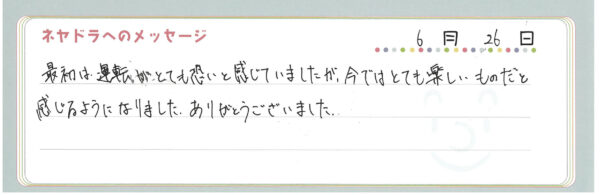 ネヤドラへのメッセージ
6月26日
最初は運転がとても恐いと感じていましたが、今ではとても楽しいものだと
感じるようになりました。ありがとうございました。